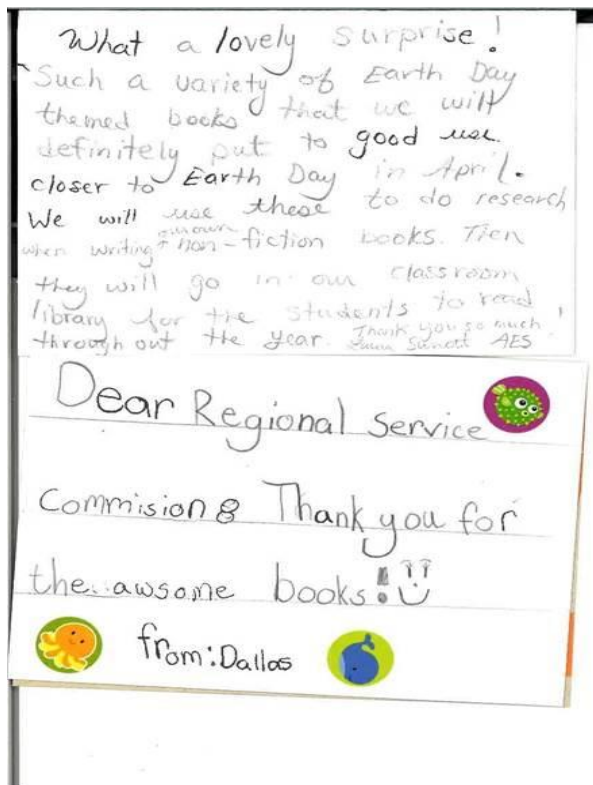 What a lovely surprise!
Such a variety of Earth Day
themed books that we will
definitely put to good use.
closer to Earth Day in April.
We will use these to do research
when writing our own non-fiction books. Then
they will go in our classroom
library for the students to read
through out the year. Thank you so much!
AES
Dear Regional Service
Commision 8 Thank you for
the awsome books!
from: Dallas